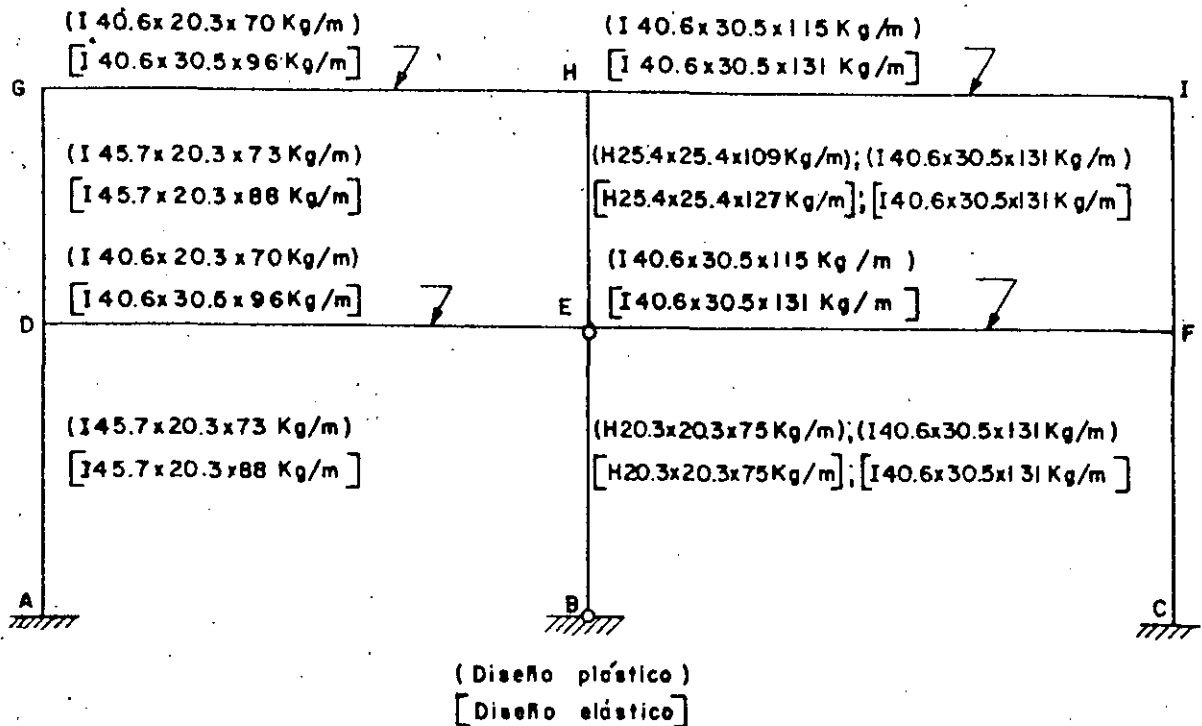 (I 40.6x20.3x70 Kg/m)
[I 40.6x30.5x96 Kg/m]
(I 40.6x30.5x115 Kg/m)
[I 40.6x30.5x131 Kg/m]
G
H
I
(I 45.7x20.3x73 Kg/m)
[I 45.7x20.3x88 Kg/m]
(H25.4x25.4x109Kg/m);(I40.6x30.5x131Kg/m)
[H25.4x25.4x127Kg/m];[I40.6x30.5x131Kg/m]
(I 40.6x20.3x70 Kg/m)
[I 40.6x30.5x96Kg/m]
(I 40.6x30.5x115 Kg/m)
[I 40.6x30.5x131 Kg/m]
D
E
F
(I45.7x20.3x73 Kg/m)
[I45.7x20.3x88 Kg/m]
(H20.3x20.3x75Kg/m);(I40.6x30.5x131Kg/m)
[H20.3x20.3x75Kg/m];[I40.6x30.5x131Kg/m]
A
B
C
(Diseño plástico)
[Diseño elástico]